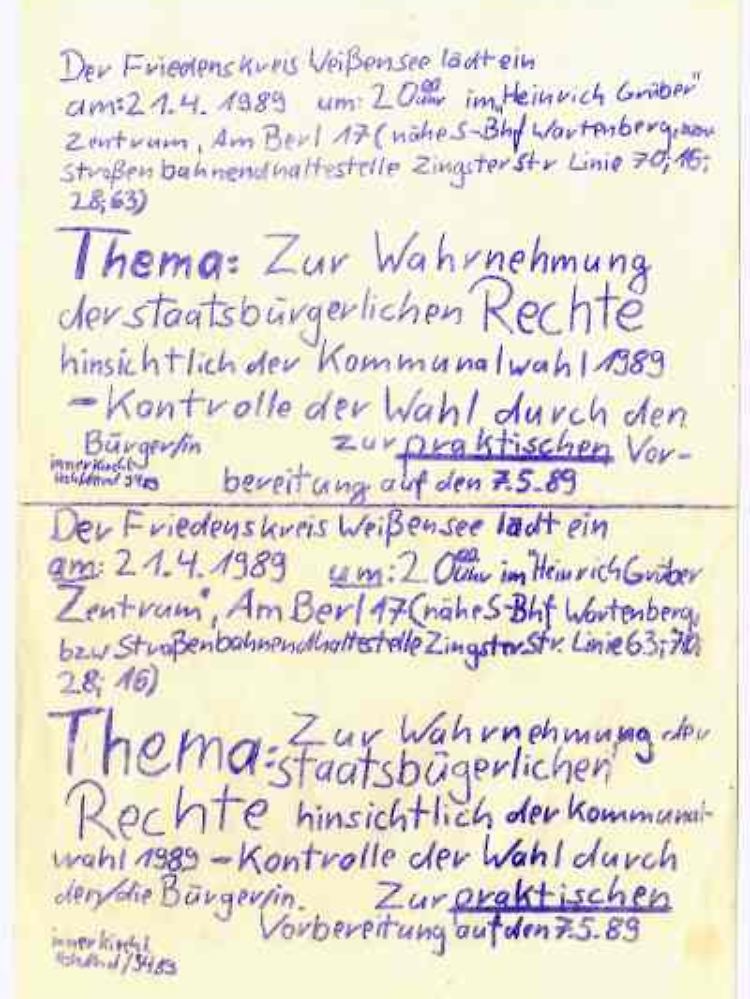 Der Friedenskreis Weißensee lädt ein
am: 21.4. 1989 um: 20 00 Uhr im "Heinrich Grüber"
Zentrum, Am Berl 17 (nähe S-Bhf Wartenberg,
Straßenbahnendhaltestelle Zingster Str Linie 70; 16;
28; 63)
Thema: Zur Wahrnehmung
der staatsbürgerlichen Rechte
hinsichtlich der Kommunalwahl 1989
- Kontrolle der Wahl durch den
Bürger/in zur praktischen Vor-
innerkirchl.
bereitung auf den 7.5.89
Der Friedenskreis Weißensee lädt ein
am: 21.4. 1989 um: 20 00 Uhr im "Heinrich Grüber
Zentrum", Am Berl 17 (nähe S-Bhf Wartenberg,
bzw Straßenbahnendhaltestelle Zingster Str. Linie 63; 70;
28; 16)
Thema: Zur Wahrnehmung der
staatsbügerlichen
Rechte hinsichtlich der Kommunal-
wahl 1989 - Kontrolle der Wahl durch
den/die Bürger/in. Zur praktischen
Vorbereitung auf den 7.5.89
innerkirchl